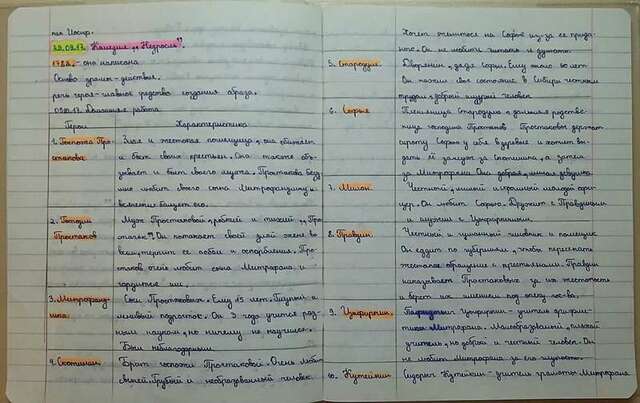 29.09.17. Комедия „Недросль".
1782. - она написана
Основа драмы - действие.
речь героя - главное средство создания образа.
Домашняя работа
Герои Характеристика
1. Госпожа Простакова.
Злая и жестокая помещица, она обижает
и бьет своих крестьян. Она также обзывает и бьет своего мужа. Простакова
любит своего сына Митрофанушку и
его.
2. Господин Простаков
Муж Простаковой, робкий и тихий
Он потакает своей злой жене во
всем, терпит её побои и оскорбления. Простаков очень любит сына Митрофана и
гордится им.
3. Митрофанушка.
Сын Простаковых. Ему 15 лет. Глупый и
ленивый подросток. Он 3 года учится разным наукам, но ничему не научился.
Был неблагодарным.
4. Скотинин.
Брат госпожи Простаковой. Очень любит
свиней. Грубый и необразованный человек.
Хочет жениться на Софье из-за её приданого. Он не любит читать и думать.
5. Стародум.
Дворянин, дядя Софьи. Ему около 60 лет
Он нажил свое состояние в Сибири честным
трудом, добрый мудрый человек
6. Софья
Племянница Стародума, дальняя родственница господина Простакова Простаковы держат
сироту Софью у себя в деревне и хотят выдать её замуж за Скотинина, а затем
за Митрофана. Она добрая, милая девушка.
7. Милон.
Честный, милый и хороший молодой офицер. Он любит Софью. Дружит с Правдиным
8. Правдин.
Честный и гуманный чиновник и помещик
Он ездит по губерниям, чтобы пересекать
жестокое обращение с крестьянами. Правдин
наказывает Простаковых за их жестокость
и берет их имением под опеку гос-ва.
9. Цыфиркин.
Цыфиркин - учитель арифметики Митрофана. Малообразованный, плохой
учитель, но добрый и честный человек. Он
не любит Митрофана за его глупость.
10. Кутейкин
Сидорыч Кутейкин - учитель грамоты Митрофана